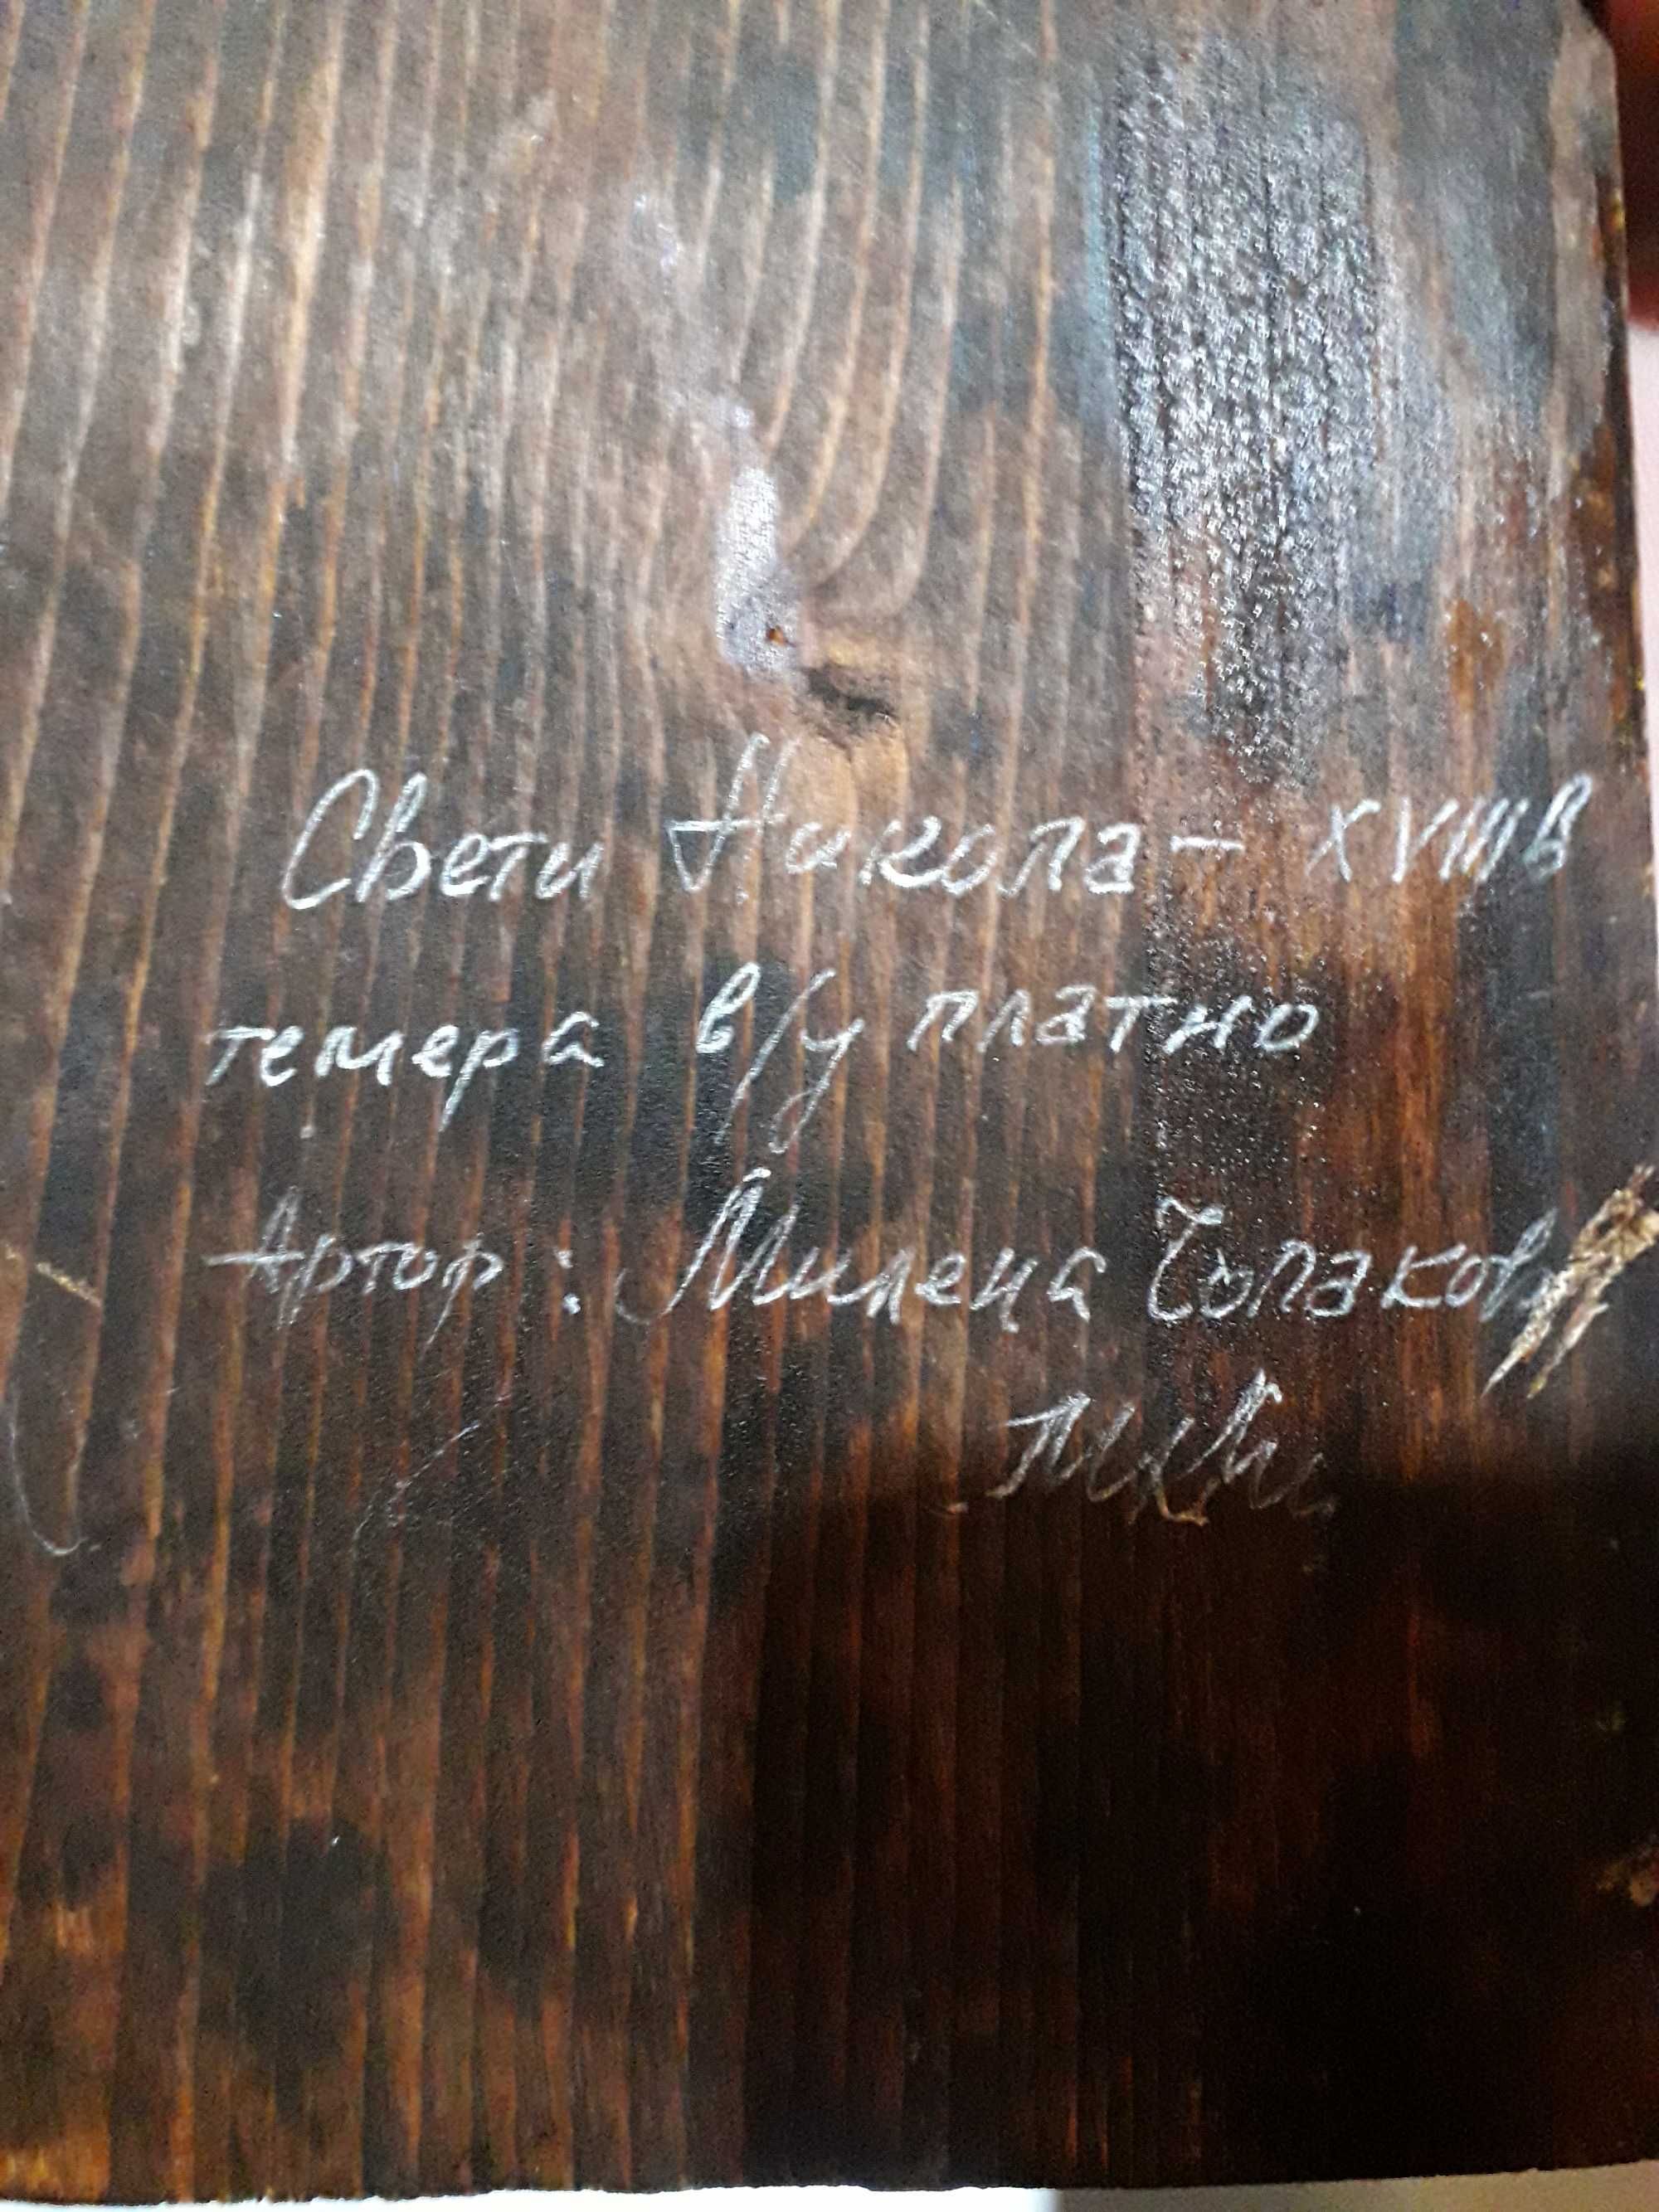 Свети Никола - XVIII в
темера в/у платно
Артор: Милена Чолакова